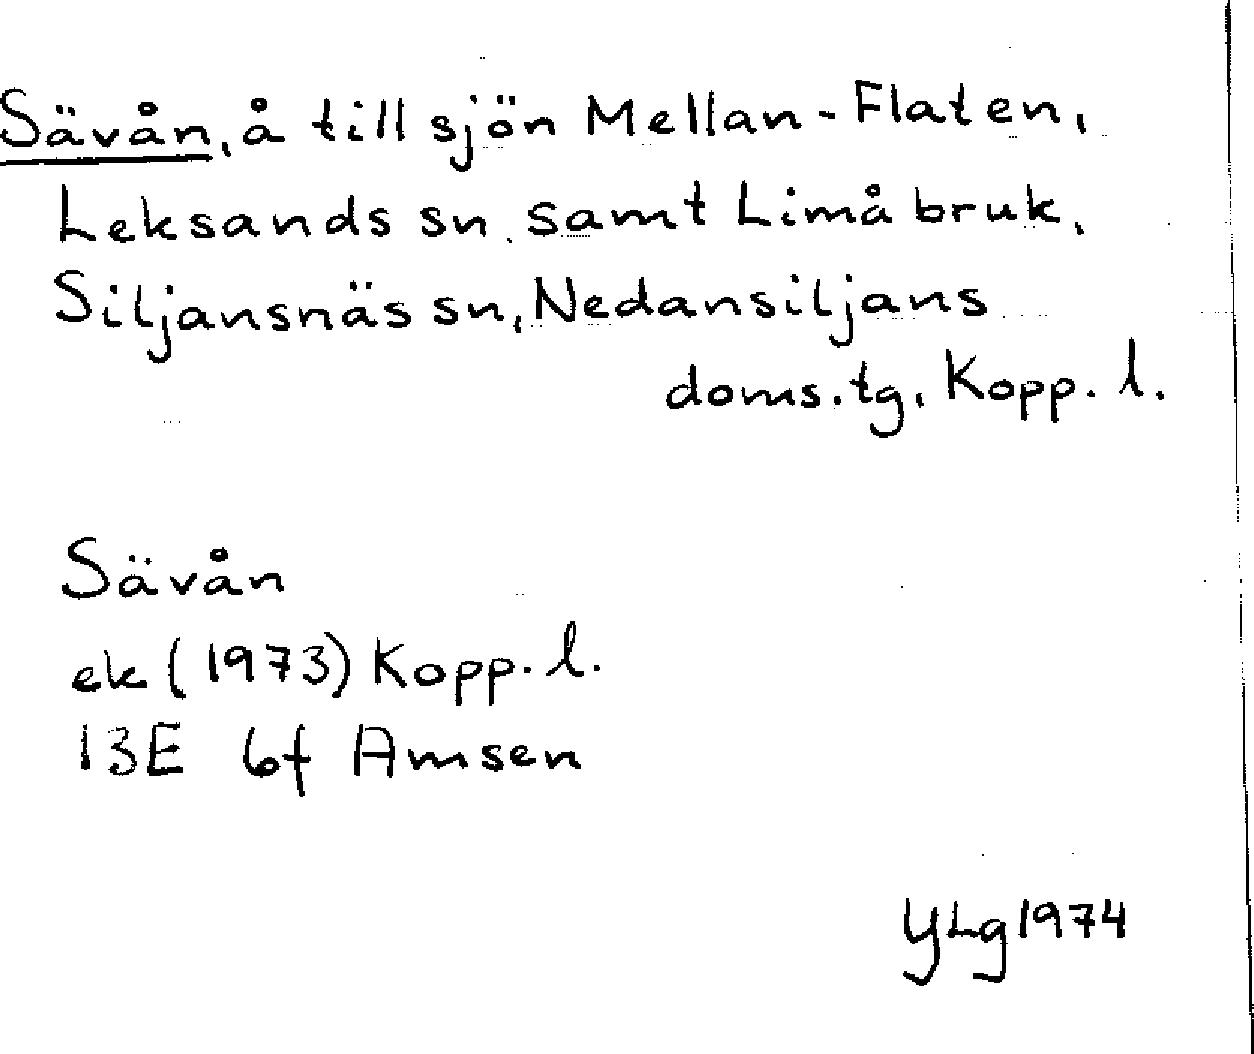 Sävån, å till sjön Mellan-Flaten,
Leksands sn samt Limå bruk,
Siljansnäs sn, Nedansiljans
doms.tg, Kopp. l.
Sävån
ek (1973) Kopp. l.
13E 6f Amsen
YLg 1974